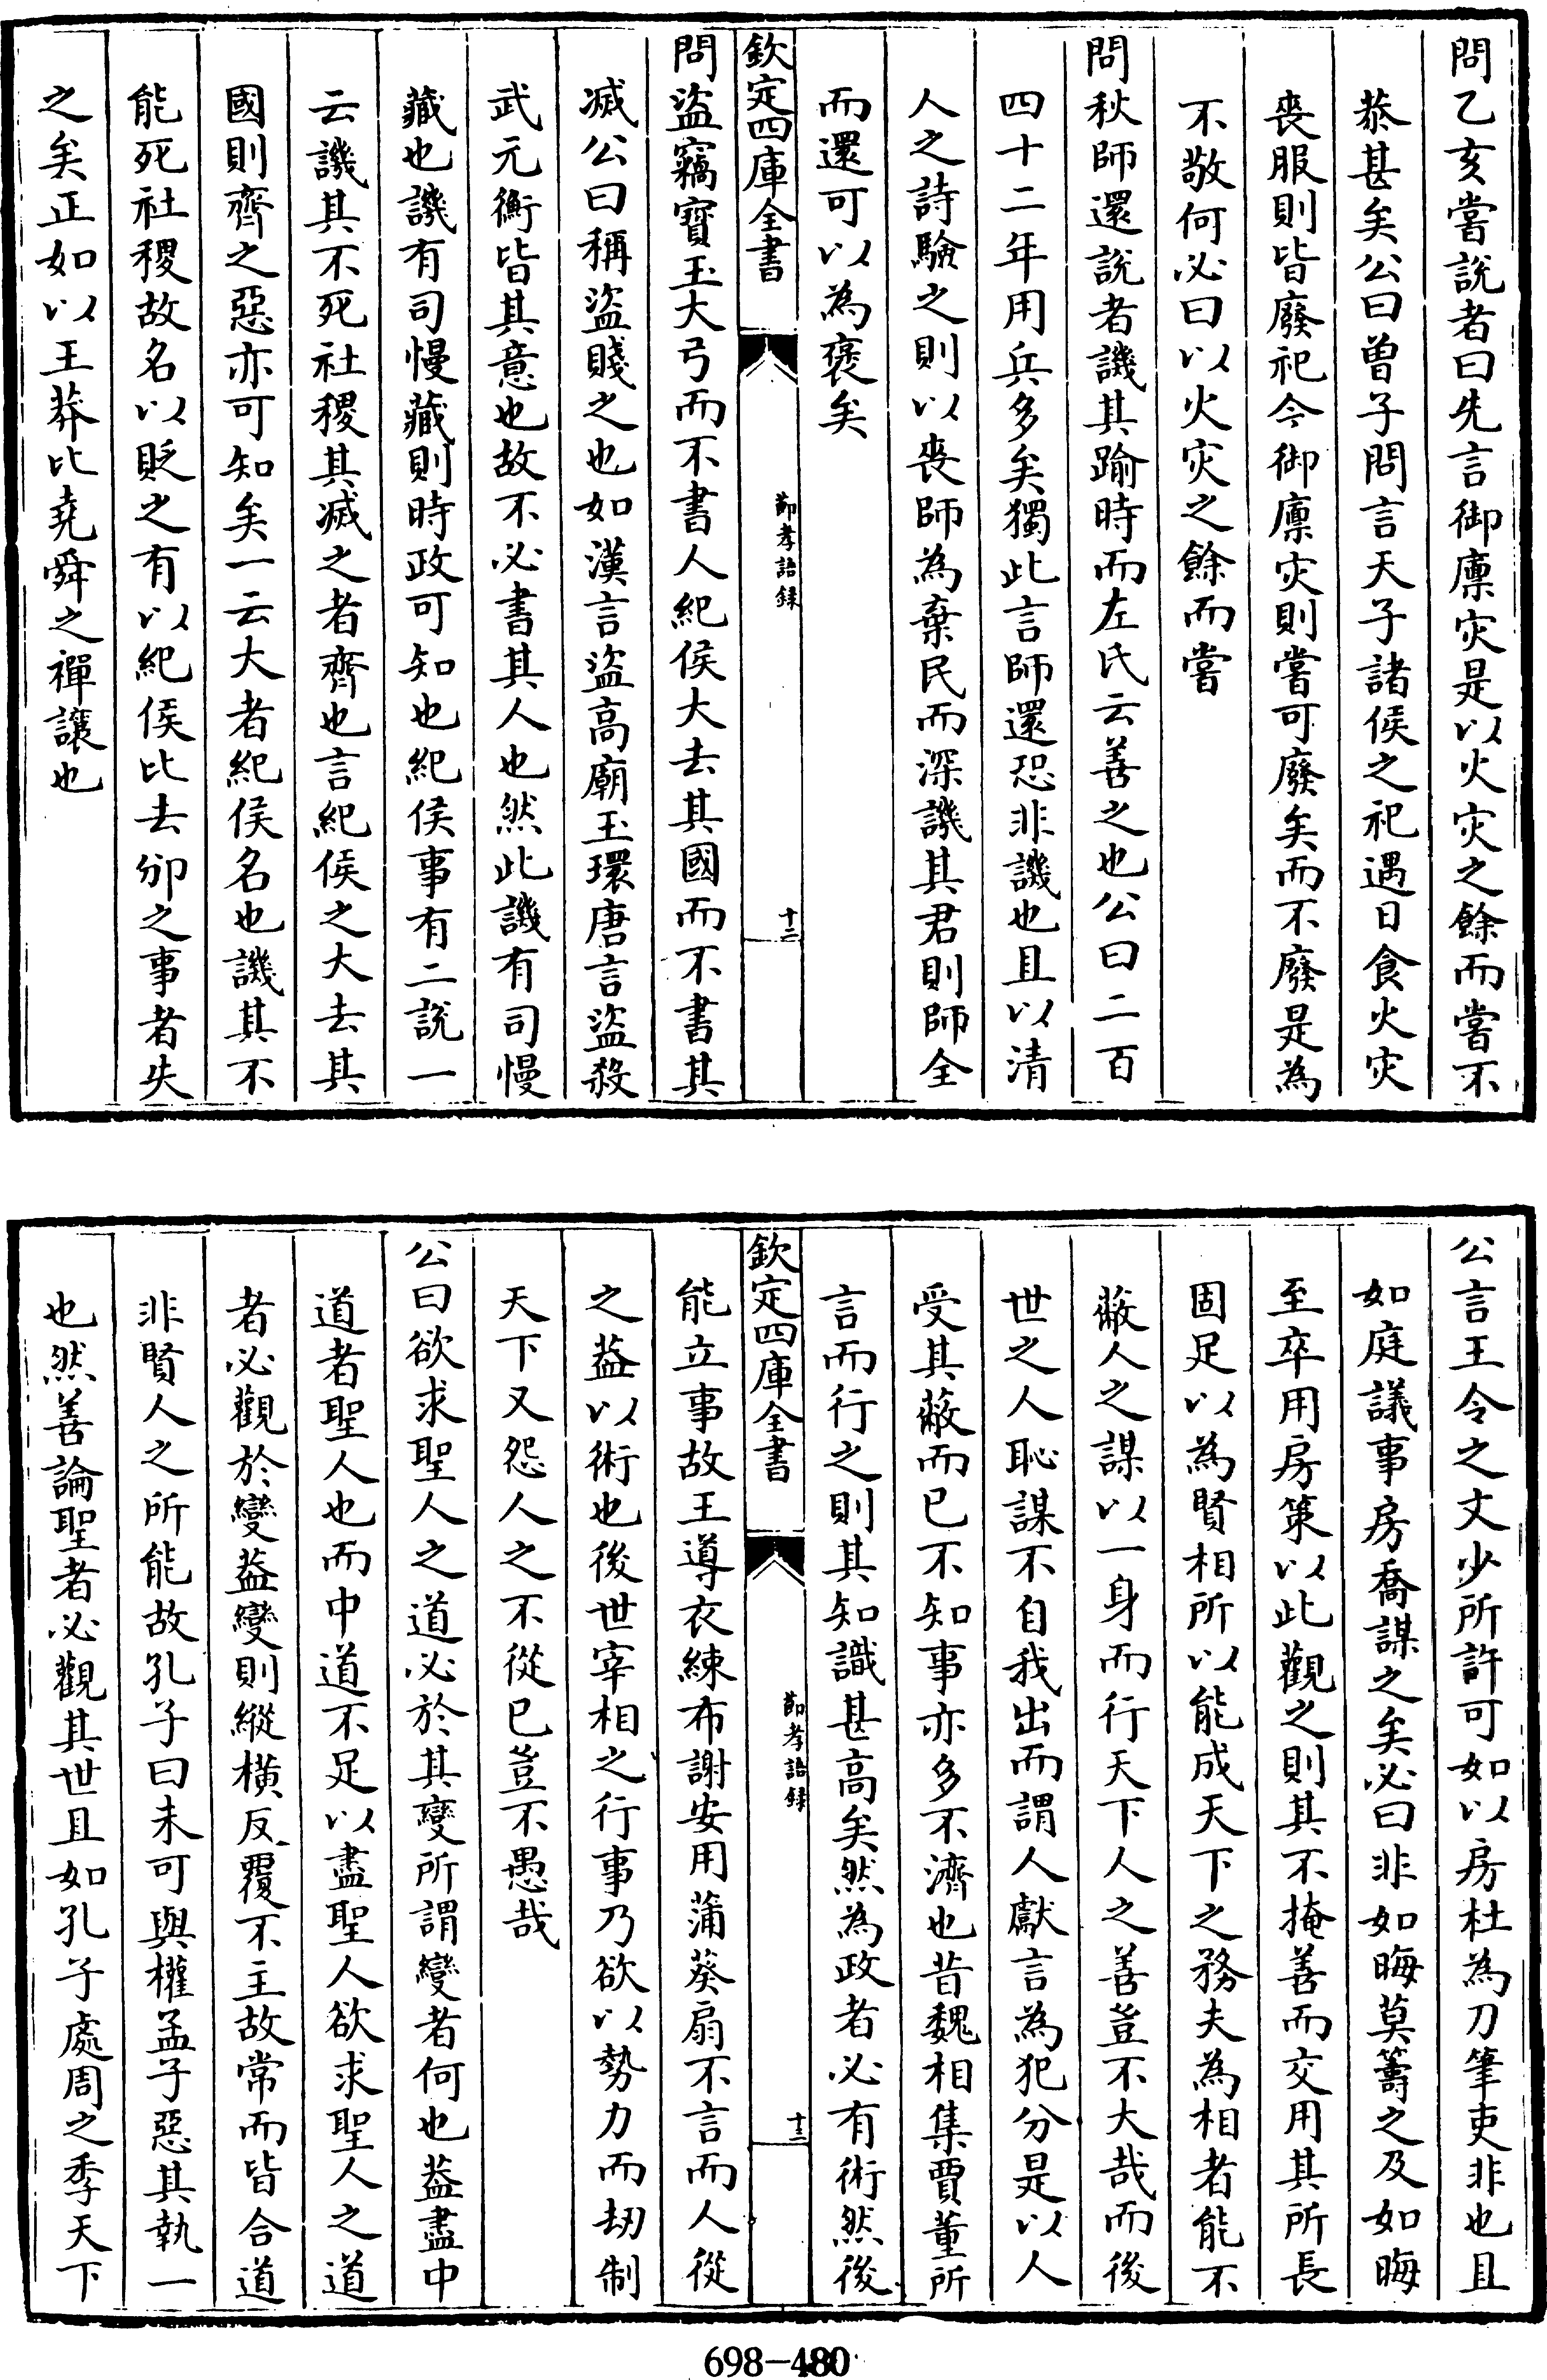 問乙亥嘗說者曰先言御廪灾是以火灾之餘而嘗不
恭甚矣公曰曽子問言天子諸侯之祀遇日食火灾
喪服則皆廢祀今御廪灾則嘗可廢矣而不廢是為
不敬何必曰以火灾之餘而嘗
問秋師還說者譏其踰時而左氏云善之也公曰二百
四十二年用兵多矣獨此言師還恐非譏也且以清
人之詩驗之則以喪師為棄民而深譏其君則師全
而還可以為褒矣
欽定四庫全書
節孝語録
十二
問盜竊寳玉大弓而不書人紀侯大去其國而不書其
滅公曰稱盜賤之也如漢言盜高廟玉環唐言盜殺
武元衡皆其意也故不必書其人也然此譏有司慢
藏也譏有司慢藏則時政可知也紀侯事有二說一
云譏其不死社稷其滅之者齊也言紀侯之大去其
國則齊之惡亦可知矣一云大者紀侯名也譏其不
能死社稷故名以貶之有以紀侯比去邠之事者失
之矣正如以王莽比堯舜之禪讓也
公言王令之文少所許可如以房杜為刀筆吏非也且
如庭議事房喬謀之矣必曰非如晦莫籌之及如晦
至卒用房策以此觀之則其不掩善而交用其所長
固足以為賢相所以能成天下之務夫為相者能不
蔽人之謀以一身而行天下人之善豈不大哉而後
世之人恥謀不自我出而謂人獻言為犯分是以人
受其蔽而已不知事亦多不濟也昔魏相集賈董所
言而行之則其知識甚高矣然為政者必有術然後
欽定四庫全書
節孝語録
十三
能立事故王導衣練布謝安用蒲葵扇不言而人從
之葢以術也後世宰相之行事乃欲以勢力而刼制
天下又怨人之不從已豈不愚哉
公曰欲求聖人之道必於其變所謂變者何也葢盡中
道者聖人也而中道不足以盡聖人欲求聖人之道
者必觀於變葢變則縱橫反覆不主故常而皆合道
非賢人之所能故孔子曰未可與權孟子惡其執一
也然善論聖者必觀其世且如孔子處周之季天下
698-480